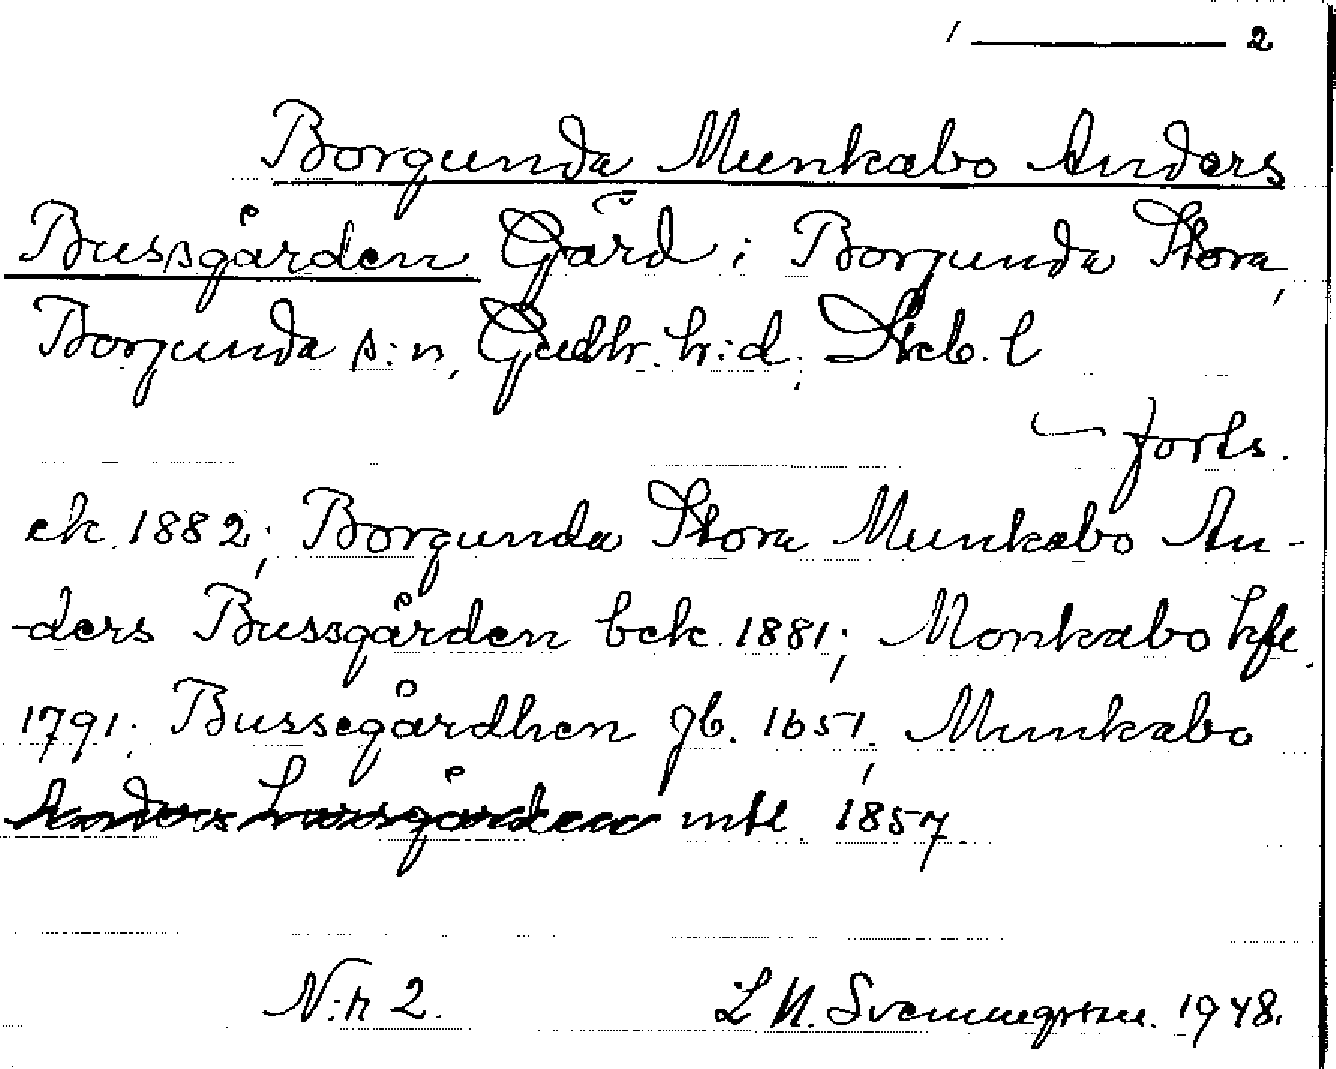 / ——— 2
Borgunda Munkabo Anders
Bussgården Gård i Borgunda Stora,
Borgunda s:n, Gudh. h:d, Skb. l
— forts.
ek. 1882; Borgunda Stora Munkabo An-
-ders Bussgården bek. 1881; Monkabo hfl.
1791; Bussegårdhen gb. 1651, Munkabo
mtl. 1857
N:r 2. L N. 1948.